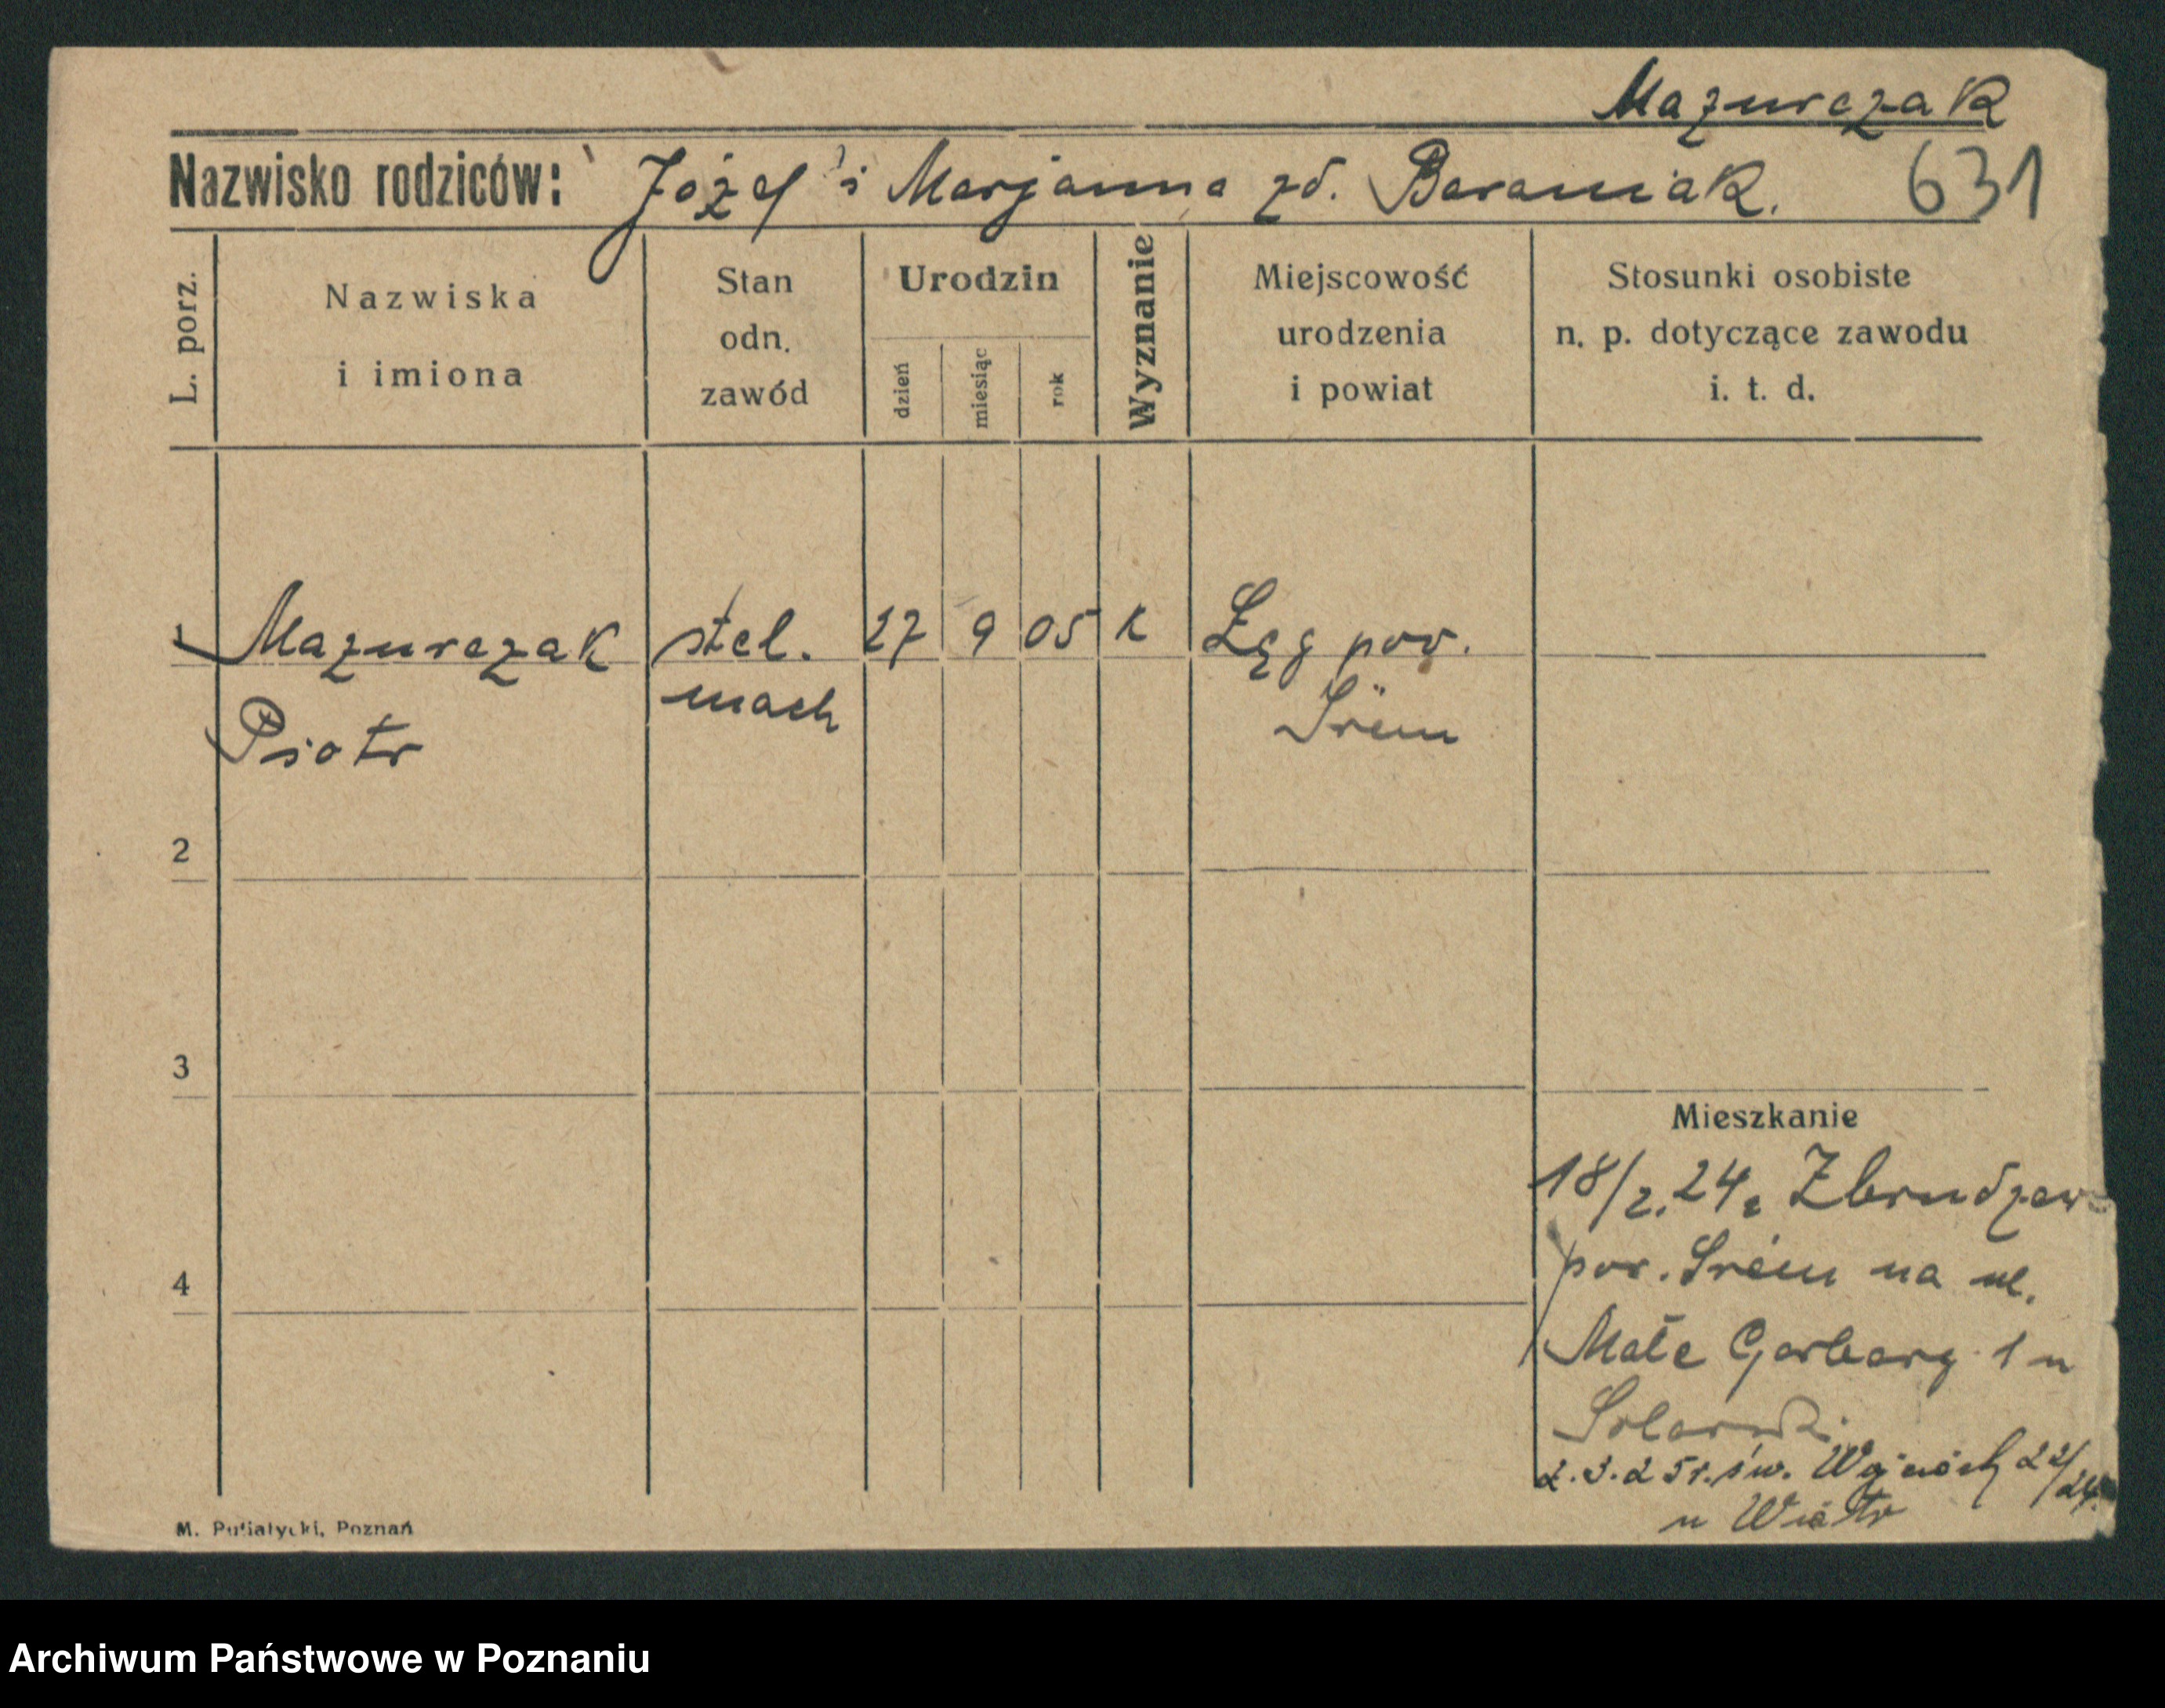 Mazurczak
Nazwisko rodziców: Józef i Marjanna zd. Baraniak. 631
L. porz.
Nazwiska
i imiona
Stan
odn.
zawód
Urodzin
dzień
miesiąc
rok
Wyznanie
Miejscowość
urodzenia
i powiat
Stosunki osobiste
n. p. dotyczące zawodu
i. t. d.
1 Mazurczak stel. 27 9 05 k Łęg pow.
Piotr mach Śrem
2
3
4
Mieszkanie
18/2. 24 z
pow. Śrem na ul.
Małe Garbary 1 u
2.3.25 r. św. Wojciech 22/24
u Wiatr
M. Putiatycki, Poznań
Archiwum Państwowe w Poznaniu